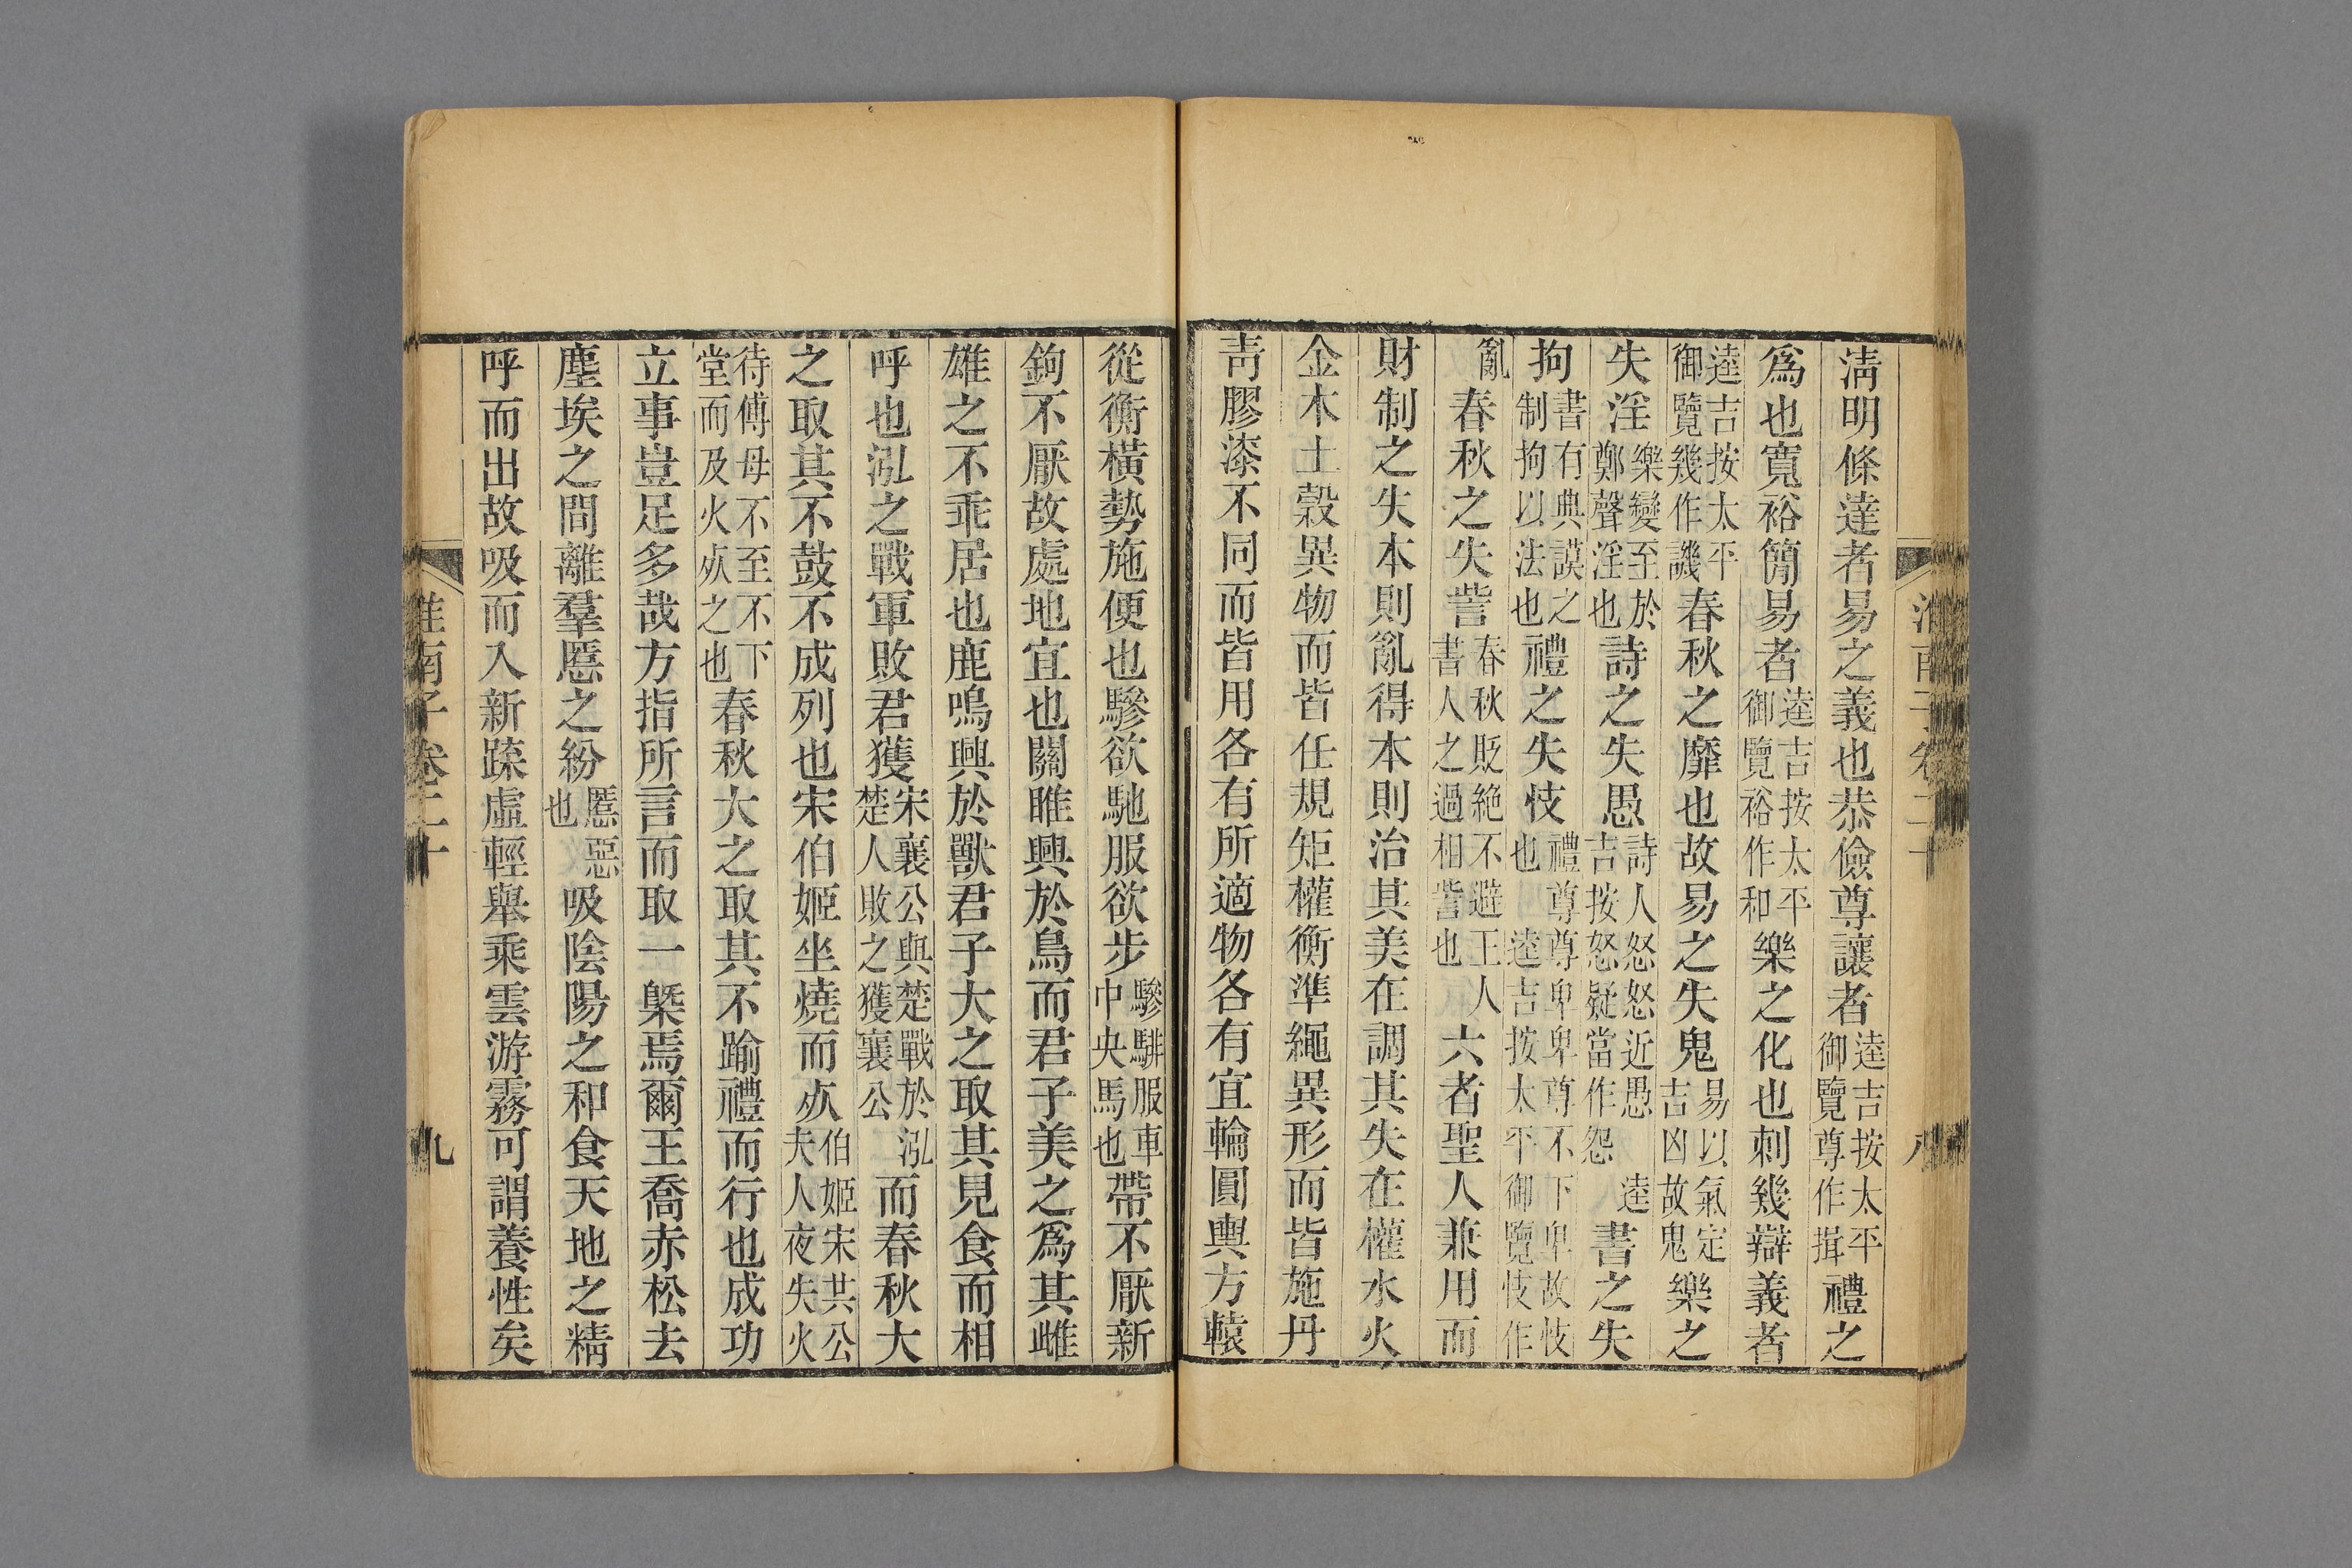 淮南子卷二十　八
清明條達者易之義也恭儉尊讓者逵吉按太平御覽尊作揖禮之
爲也寬裕簡易者逵吉按太平御覽裕作和樂之化也刺幾辯義者
逵吉按太平御覽幾作譏春秋之靡也故易之失鬼易以氣定吉凶故鬼樂之
失淫樂變至於鄭聲淫也詩之失愚詩人怒怒近愚逵吉按怒疑當作怨書之失
拘書有典謨之制拘以法也禮之失忮禮尊尊卑卑尊不下卑故忮也逵吉按太平御覽忮作
亂春秋之失訾春秋貶絶不避王人書人之過相訾也六者聖人兼用而
財制之失本則亂得本則治其美在調其失在權水火
金木土穀異物而皆任規矩權衡準繩異形而皆施丹
青膠漆不同而皆用各有所適物各有宜輪圓輿方轅
從衡橫勢施便也驂欲馳服欲步驂騑服車中央馬也帶不厭新
鉤不厭故處地宜也關雎興於鳥而君子美之爲其雌
雄之不乖居也鹿鳴興於獸君子大之取其見食而相
呼也泓之戰軍敗君獲宋襄公與楚戰於泓楚人敗之獲襄公而春秋大
之取其不鼓不成列也宋伯姬坐燒而死伯姬宋共公夫人夜失火
待傅母不至不下堂而及火死之也春秋大之取其不踰禮而行也成功
立事豈足多哉方指所言而取一槩焉爾王喬赤松去
塵埃之間離羣慝之紛慝惡也吸陰陽之和食天地之精
呼而出故吸而入新蹀虛輕舉乘雲游霧可謂養性矣
淮南子卷二十　九